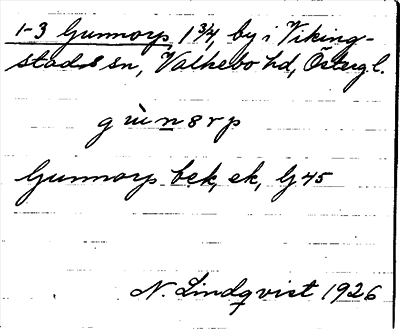 1-3 Gunnorp, 1 3/4, by i Viking-
stads sn, Valkebo hd, Östergl.
gùnsrp
Gunnorp bek, ek, G 45
N. Lindqvist 1926